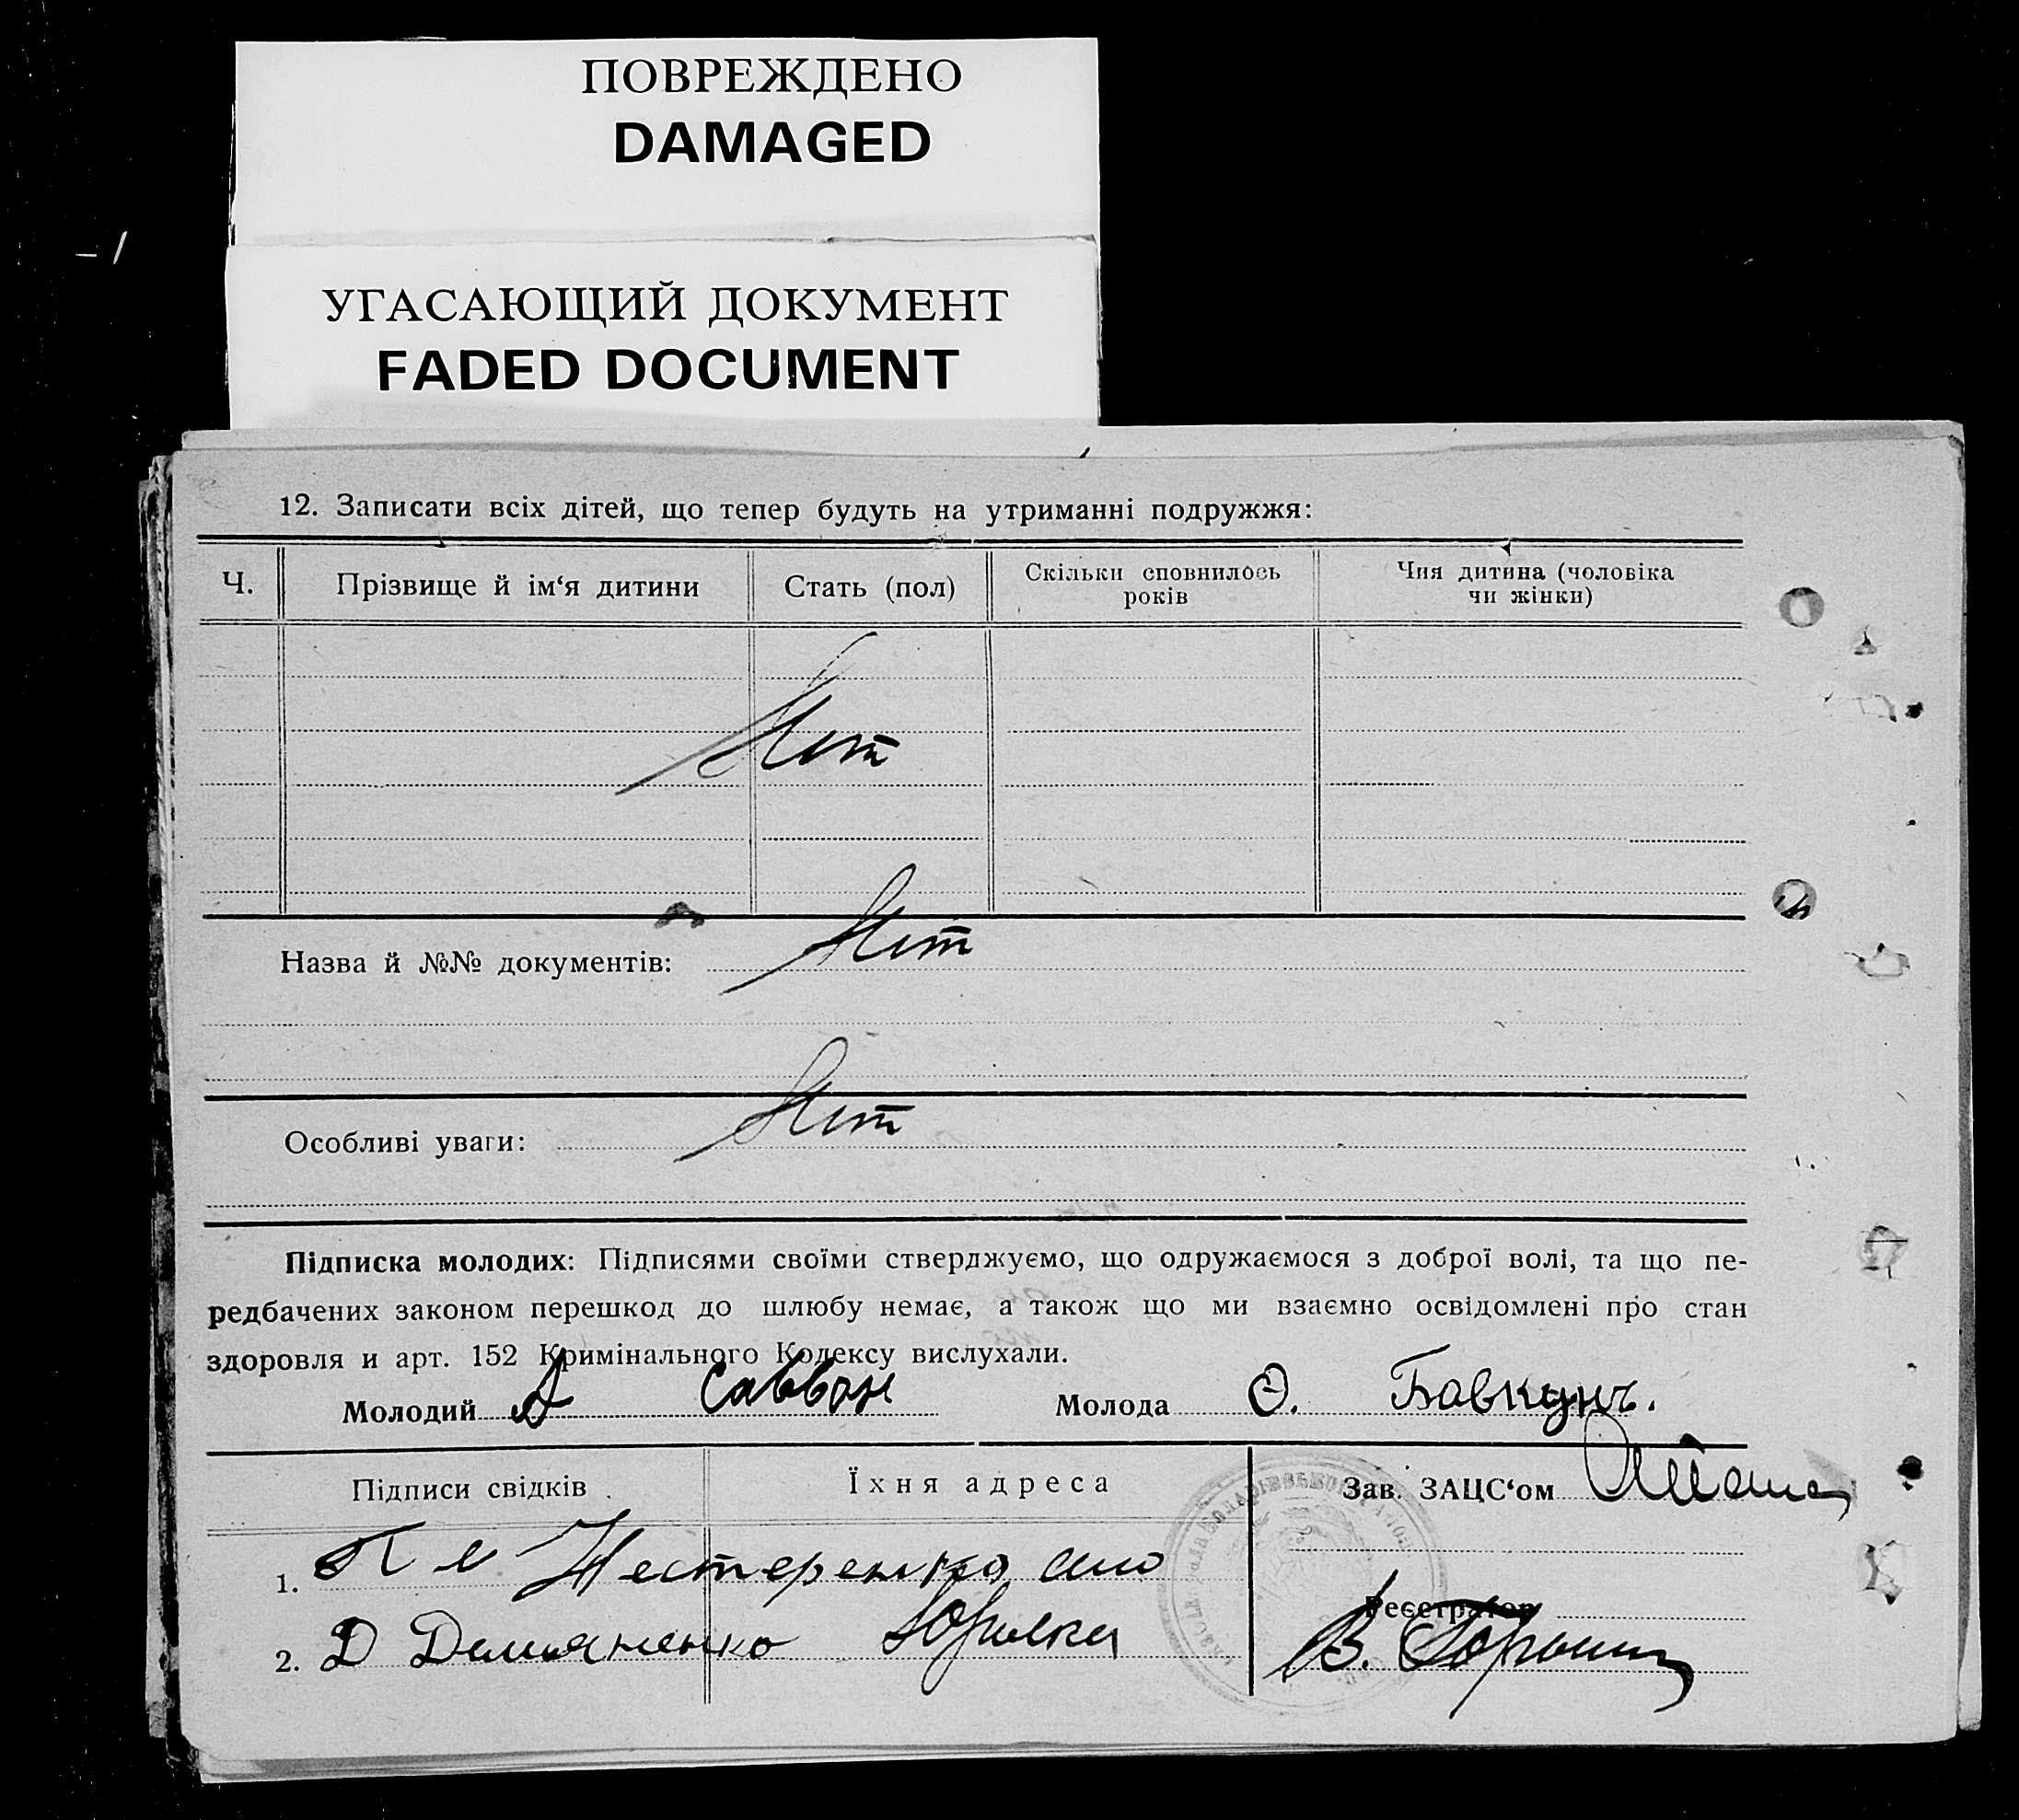 ПОВРЕЖДЕНО
DAMAGED
УГАСАЮЩИЙ ДОКУМЕНТ
FADED DOCUMENT
12. Записати всіх дітей, що тепер будуть на утриманні подружжя:
Ч. Прізвище й ім‘я дитини Стать (пол) Скільки сповнилось років Чия дитина (чоловіка чи жінки)
Нет
Назва й №№ документів: Нет
Особливі уваги: Нет
Підписка молодих: Підписями своїми стверджуємо, що одружаємося з доброї волі, та що пе-
редбачених законом перешкод до шлюбу немає, а також що ми взаємно освідомлені про стан
здоровля и арт. 152 Кримінального Кодексу вислухали.
Молодий А Саввон Молода Ѳ. Бавкунъ.
Підписи свідків Їхня адреса Зав. ЗАЦС‘ом
1. П Нестеренко село
2. Д Демяненко Юрʼевка
Реєстратор
В.